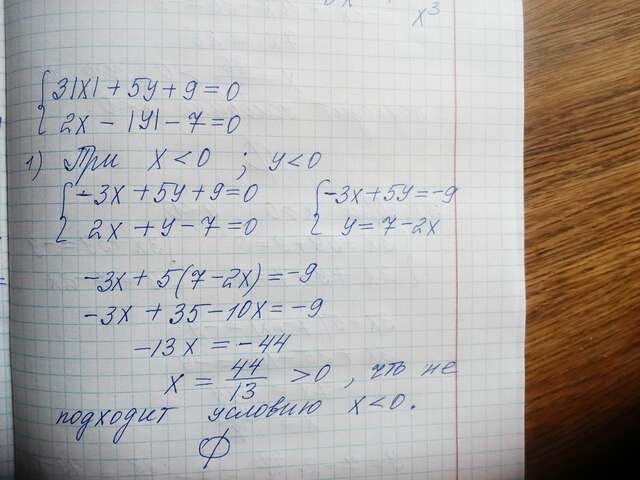 x³
{ 3|x| + 5y + 9 = 0
2x - |y| - 7 = 0
1) При x < 0 ; y < 0
{ -3x + 5y + 9 = 0 { -3x + 5y = -9
2x + y - 7 = 0 y = 7 - 2x
-3x + 5(7 - 2x) = -9
-3x + 35 - 10x = -9
-13x = -44
x = 44/13 > 0 , что не
подходит условию x < 0.
∅